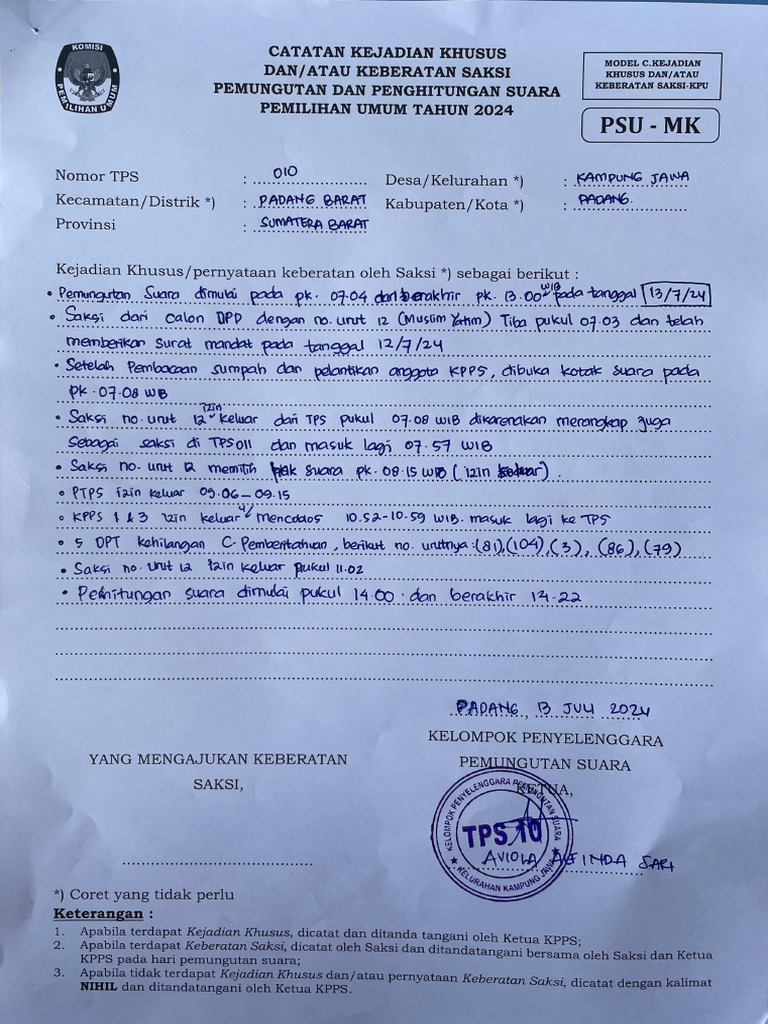 KOMISI
PEMILIHAN UMUM
CATATAN KEJADIAN KHUSUS
DAN/ATAU KEBERATAN SAKSI
PEMUNGUTAN DAN PENGHITUNGAN SUARA
PEMILIHAN UMUM TAHUN 2024
MODEL C.KEJADIAN
KHUSUS DAN/ATAU
KEBERATAN SAKSI-KPU
PSU - MK
Nomor TPS : 010
Desa/Kelurahan *) : KAMPUNG JAWA
Kecamatan/Distrik *) : PADANG BARAT
Kabupaten/Kota *) : PADANG.
Provinsi : SUMATERA BARAT
Kejadian Khusus/pernyataan keberatan oleh Saksi *) sebagai berikut :
• Pemungutan Suara dimulai pada pk. 07.04 dan berakhir pk. 13.00 WIB pada tanggal 13/7/24
• Saksi dari calon DPD dengan no. urut 12 (Muslim Yatim) Tiba pukul 07.03 dan telah
memberikan surat mandat pada tanggal 12/7/24
• Setelah Pembacaan sumpah dan pelantikan anggota KPPS, dibuka kotak suara pada
pk. 07.08 WIB
• Saksi no. urut 12 izin keluar dari TPS pukul 07.08 WIB dikarenakan merangkap juga
sebagai saksi di TPS 011 dan masuk lagi 07.57 WIB
• Saksi no. urut 12 memilih hak suara pk. 08.15 WIB (izin keluar).
• PTPS izin keluar 09.06 – 09.15
• KPPS 1 & 3 izin keluar u/ mencoblos 10.52-10.59 WIB. masuk lagi ke TPS
• 5 DPT kehilangan C-Pemberitahuan, berikut no. urutnya : (81), (104), (3), (86), (79)
• Saksi no. urut 12 izin keluar pukul 11.02
• Penhitungan suara dimulai pukul 14.00 dan berakhir 14.22
PADANG, 13 JULI 2024
KELOMPOK PENYELENGGARA
PEMUNGUTAN SUARA
KETUA,
YANG MENGAJUKAN KEBERATAN
SAKSI,
KELOMPOK PENYELENGGARA PEMUNGUTAN SUARA
TPS 10
KELURAHAN KAMPUNG JAWA
SARI
*) Coret yang tidak perlu
Keterangan :
1. Apabila terdapat Kejadian Khusus, dicatat dan ditanda tangani oleh Ketua KPPS;
2. Apabila terdapat Keberatan Saksi, dicatat oleh Saksi dan ditandatangani bersama oleh Saksi dan Ketua
KPPS pada hari pemungutan suara;
3. Apabila tidak terdapat Kejadian Khusus dan/atau pernyataan Keberatan Saksi, dicatat dengan kalimat
NIHIL dan ditandatangani oleh Ketua KPPS.